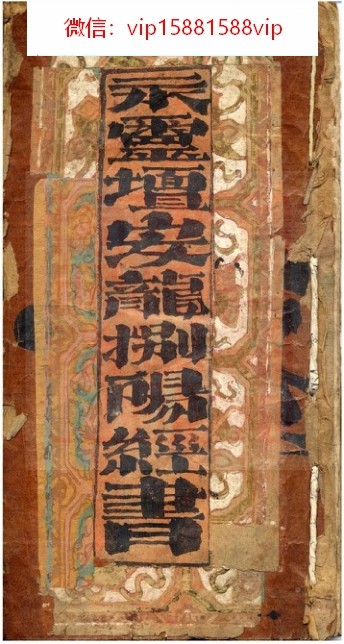 微信：vip15881588vip
永靈壇安龍捌陽經書